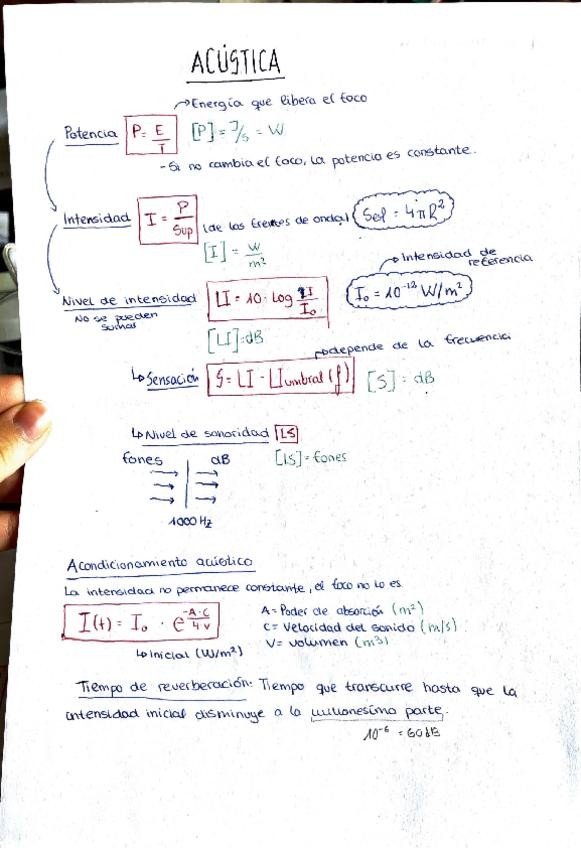 ACÚSTICA
Energía que libera el foco
Potencia P = E/T [P] = J/s = W
- Si no cambia el foco, la potencia es constante.
Intensidad I = P/Sup (de los frentes de onda) Sesf = 4πR²
[I] = W/m²
Intensidad de referencia
Nivel de intensidad LI = 10 · Log I/I₀ I₀ = 10⁻¹² W/m²
No se pueden sumar
[LI] = dB
depende de la frecuencia
Sensación S = LI - LIumbral (f) [S] = dB
Nivel de sonoridad LS
fones dB [LS] = fones
1000 Hz
Acondicionamiento acústico
La intensidad no permanece constante, el foco no lo es
I(t) = I₀ · e^(-A·C/4V)
A = Poder de absorción (m²)
C = Velocidad del sonido (m/s)
V = volumen (m³)
Inicial (W/m²)
Tiempo de reverberación: Tiempo que transcurre hasta que la
intensidad inicial disminuye a la millonesima parte.
10⁻⁶ = 60 dB